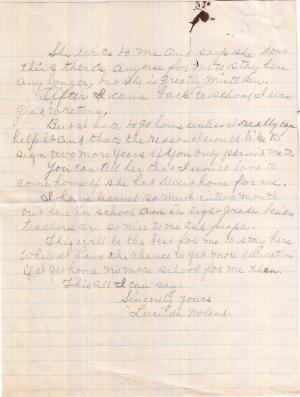 She writes to me and says she dont
think there's any use for me to stay here
any longer, but she is greatly mistaken.
After I came back to school I was
glad to return.
But I hate to go home unless I really can
help it and thats the reason I would like to
sign two more years if you only permit me to.
You can tell her that I would love to
come home if she had a decent home for me.
I have learned so much in two month
out here in school am in eight grade besides
teachers are so nice to me and people.
This will be the best for me to stay here
while I have the chance to get more education
if I get home no more school for me then.
This all I can say.
Sincerely yours
Lucinda Noland.